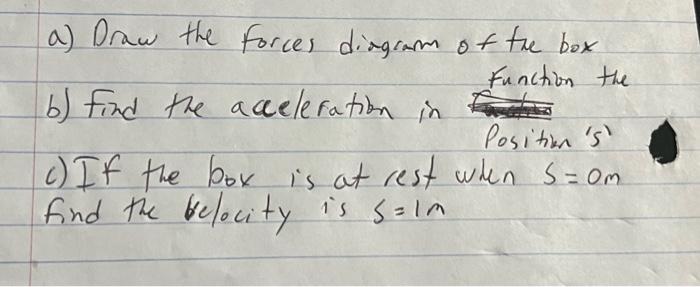 a) Draw the forces diagram of the box
Function the
b) find the acceleration in
Position 's'
c) If the box is at rest when S=0m
find the velocity is S=1m